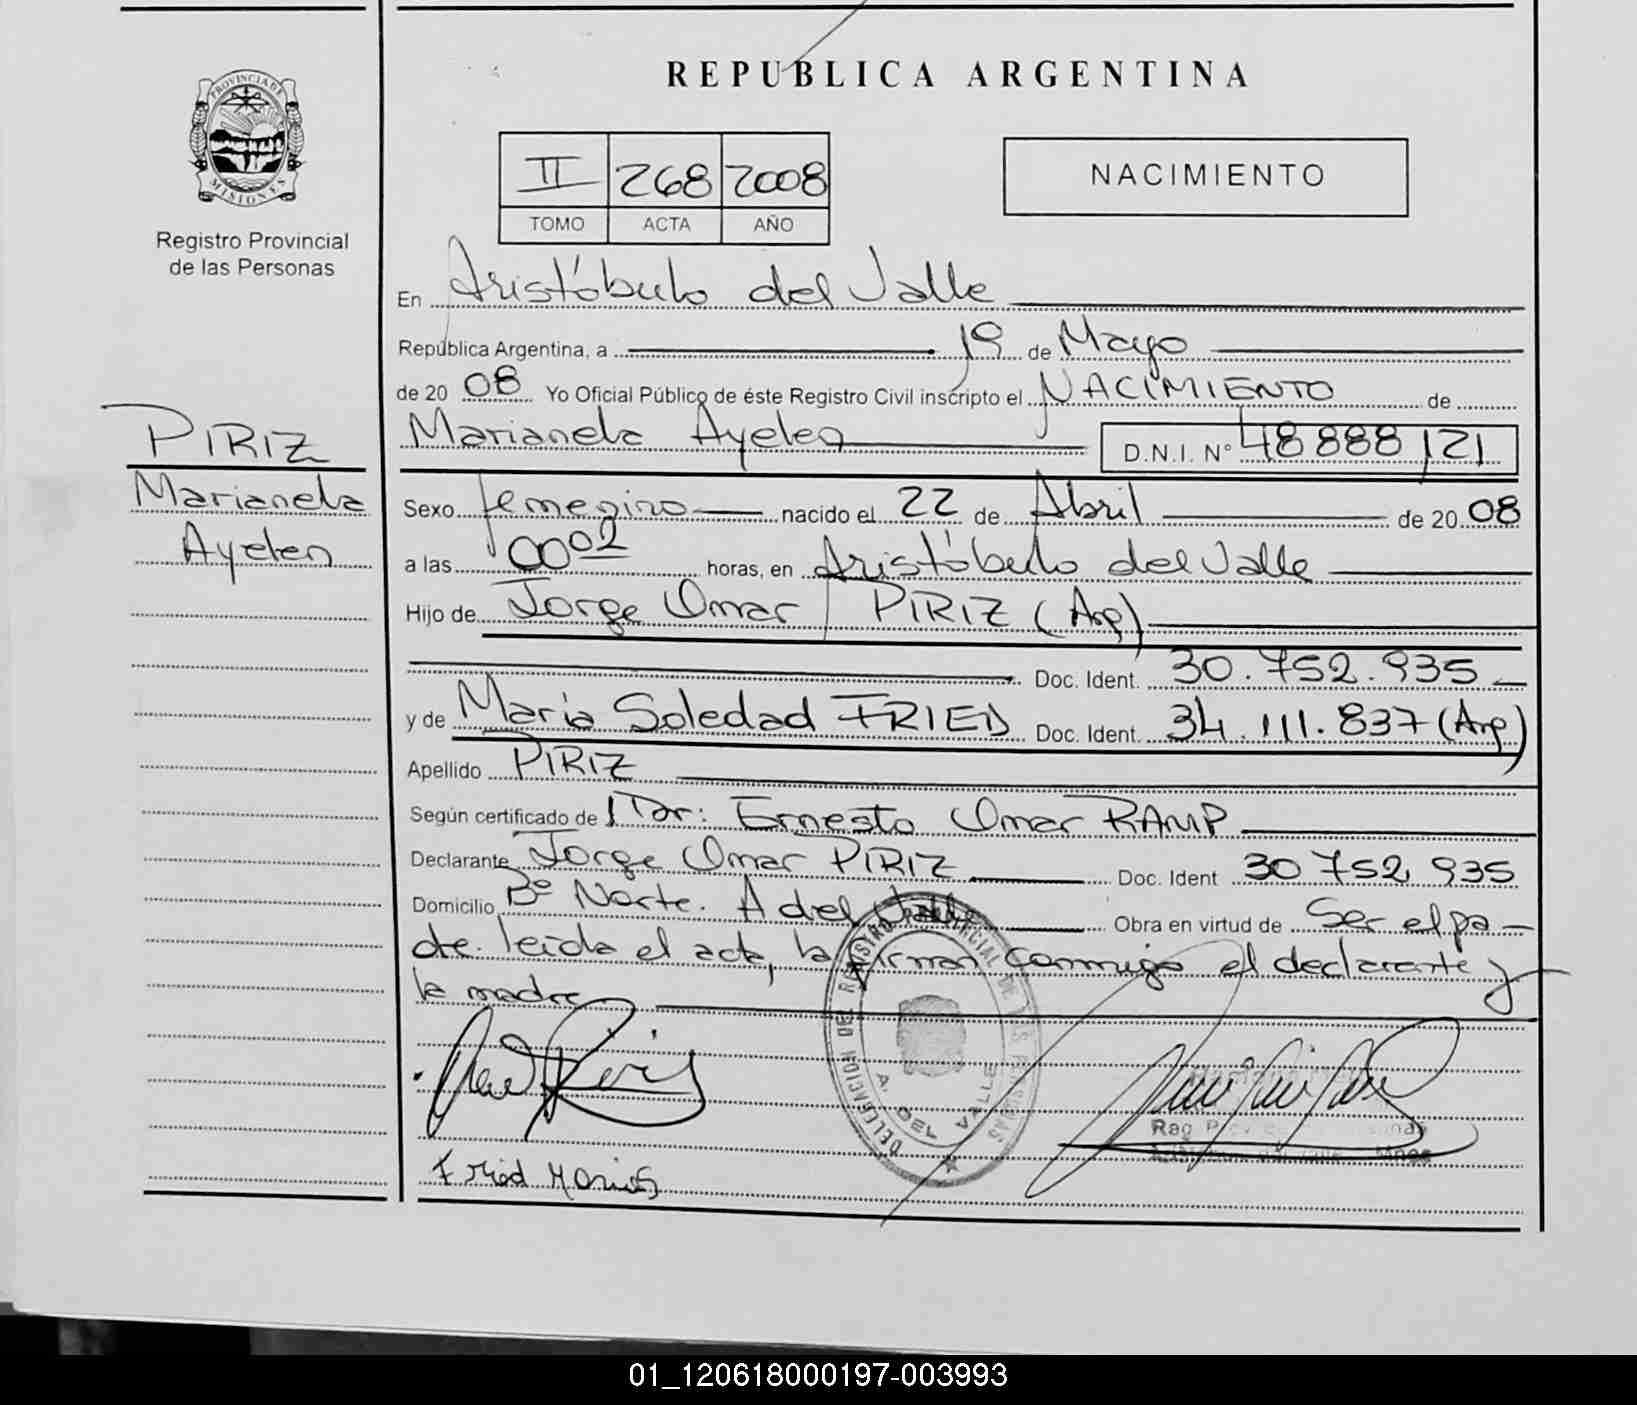 REPUBLICA ARGENTINA
PROVINCIA DE MISIONES
Registro Provincial
de las Personas
II 268 2008
TOMO ACTA AÑO
NACIMIENTO
En Aristóbulo del Valle
República Argentina, a 19 de Mayo
de 20 08 Yo Oficial Público de éste Registro Civil inscripto el NACIMIENTO de
Marianela Ayelen D.N.I. N° 48 888 121
PIRIZ
Marianela
Ayelen
Sexo femenino nacido el 22 de Abril de 20 08
a las 00 02 horas, en Aristóbulo del Valle
Hijo de Jorge Omar PIRIZ (Arg)
Doc. Ident. 30.752.935
y de María Soledad FRIED Doc. Ident. 34.111.837 (Arg)
Apellido PIRIZ
Según certificado de Dr: Ernesto Omar RAMP
Declarante Jorge Omar PIRIZ Doc. Ident 30 752 935
Domicilio Bº Norte. A del Valle Obra en virtud de Ser el pa-
dre. leida el acta, la firman conmigo el declarante y
la madre
DELEGACION DEL REGISTRO PROVINCIAL DE LAS PERSONAS
A. DEL VALLE
Fried Maria S
01_120618000197-003993